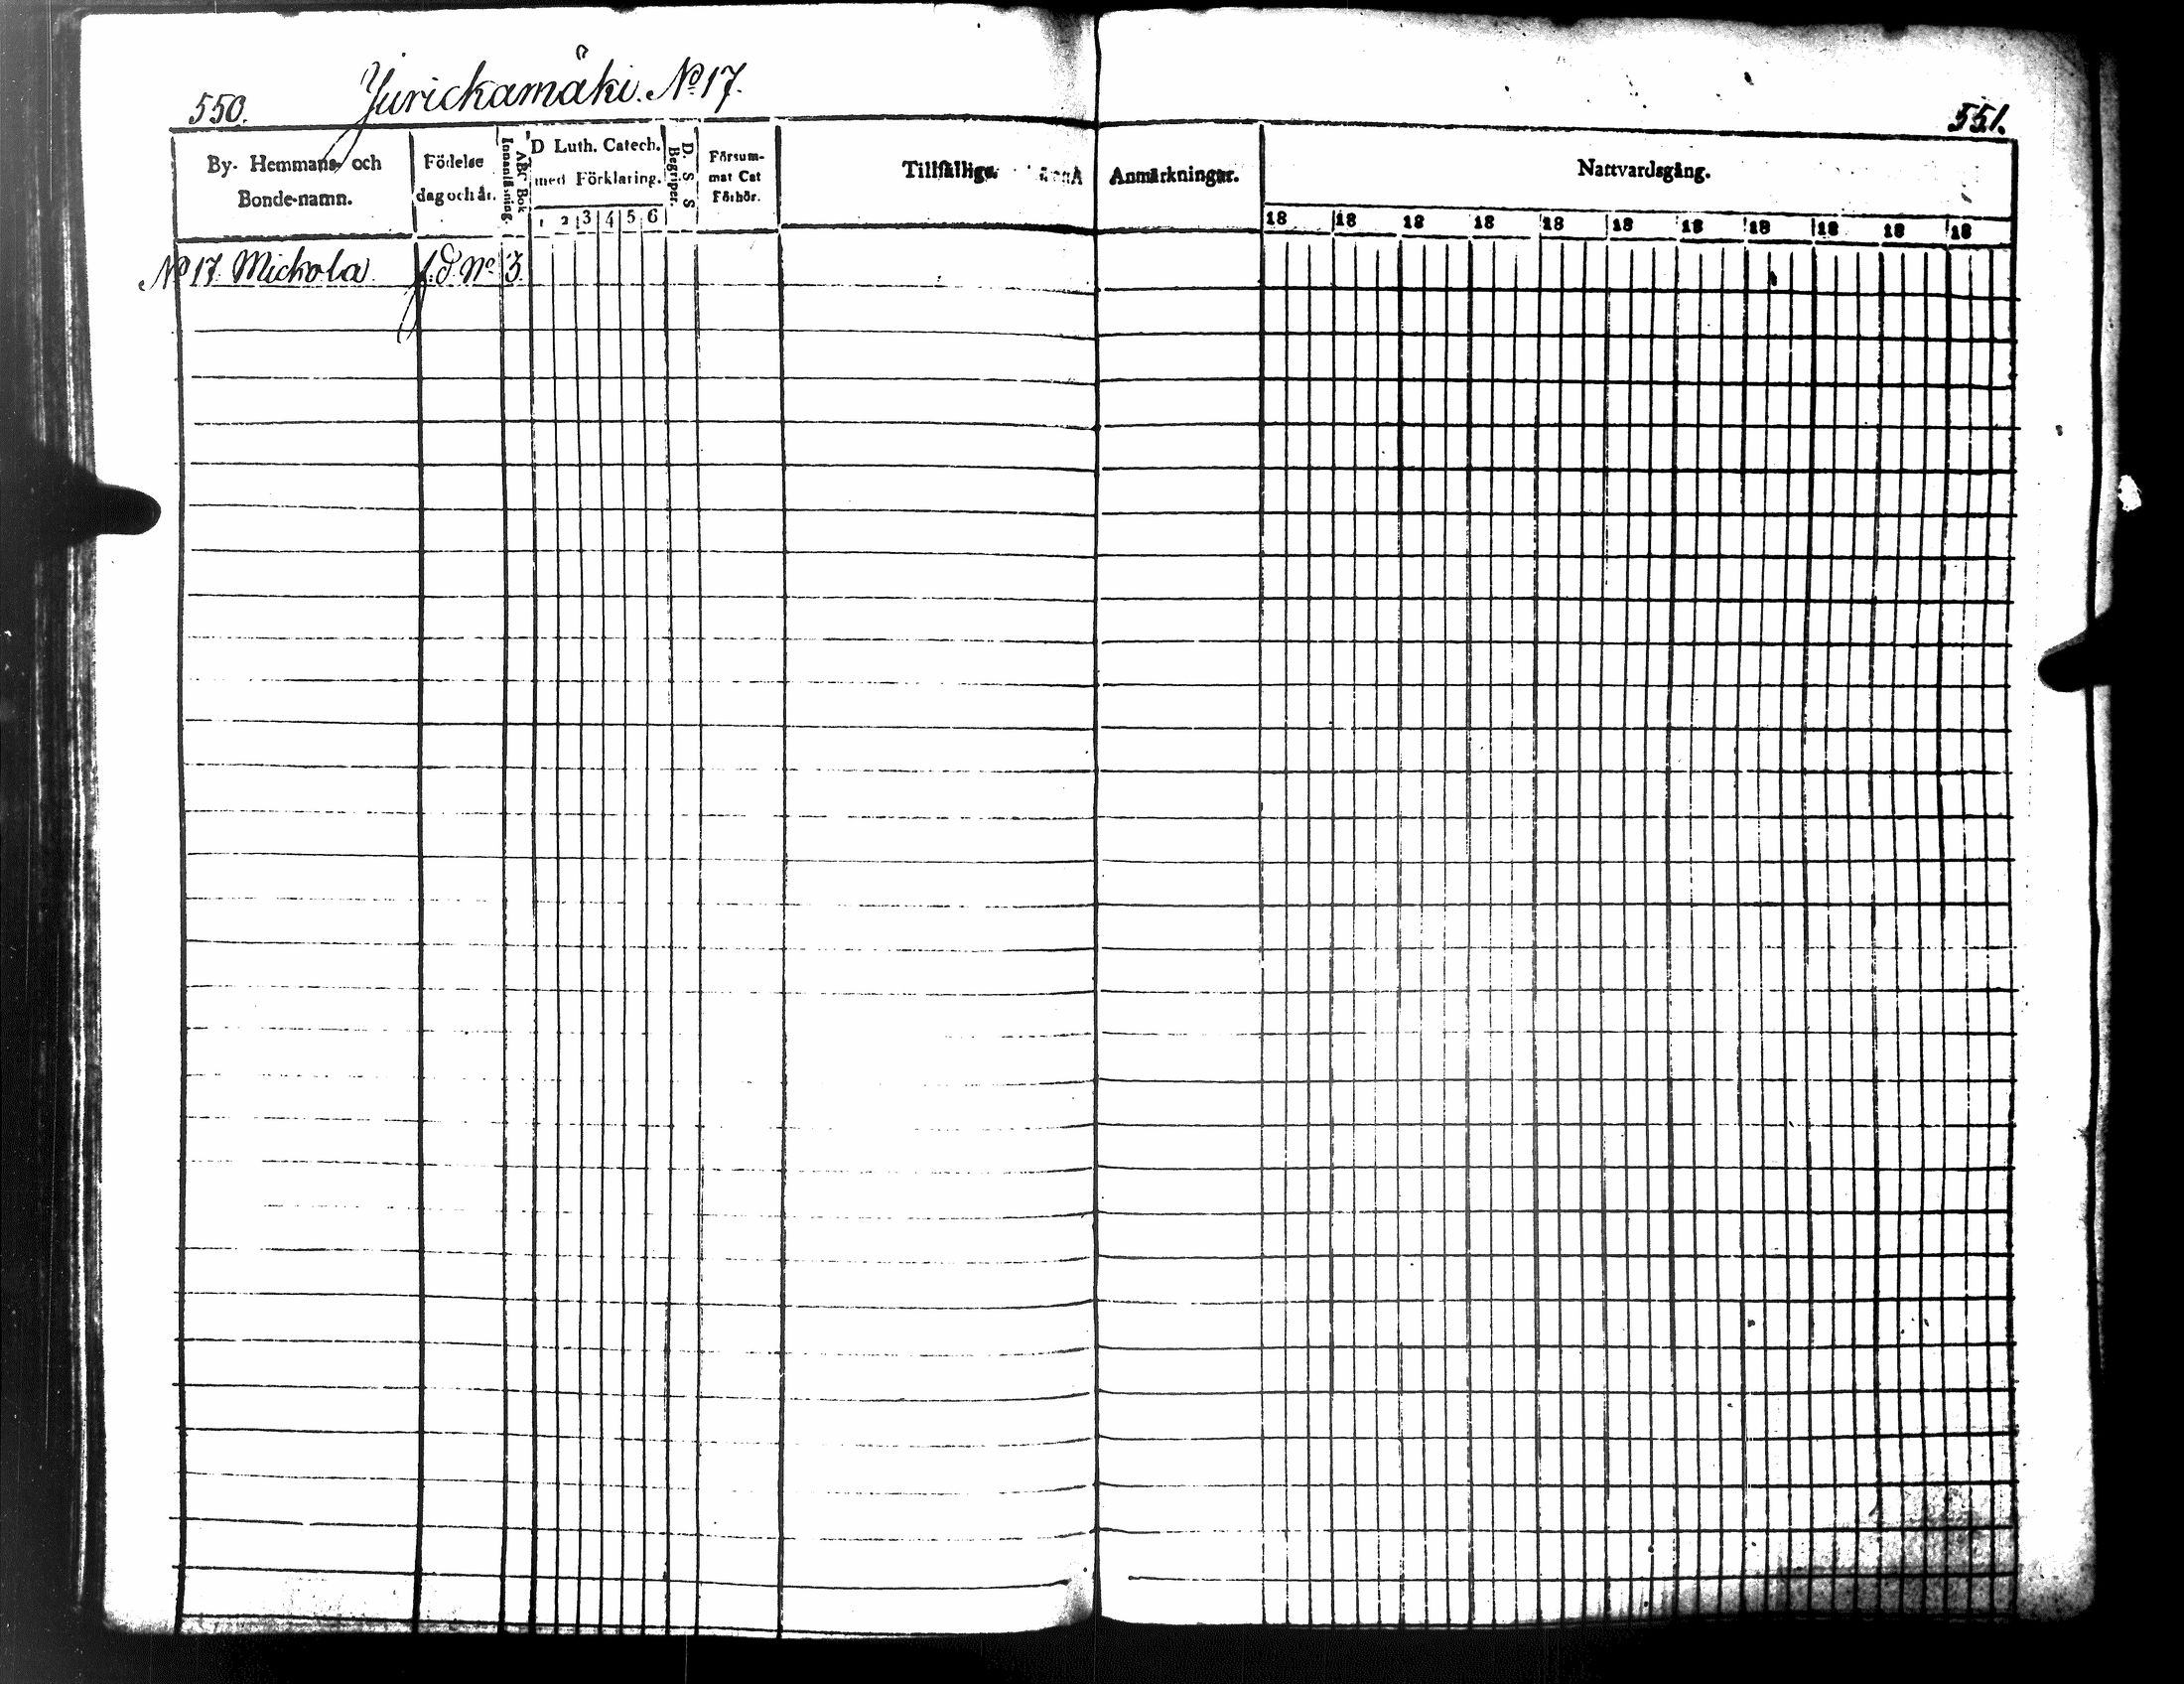 550. Jurickamäki. No 17.
551.
By- Hemmans- och Bonde-namn.
Födelse dag och år.
Innanläsning.
ABC Bok
D Luth. Catech. med Förklaring.
1 2 3 4 5 6
Begriper.
D. S. S
Försum-mat Cat Förhör.
Tillfällige
Anmärkningar.
Nattvardsgång.
18 18 18 18 18 18 18 18 18 18 18
No 17 Mickola f.d. No 3.